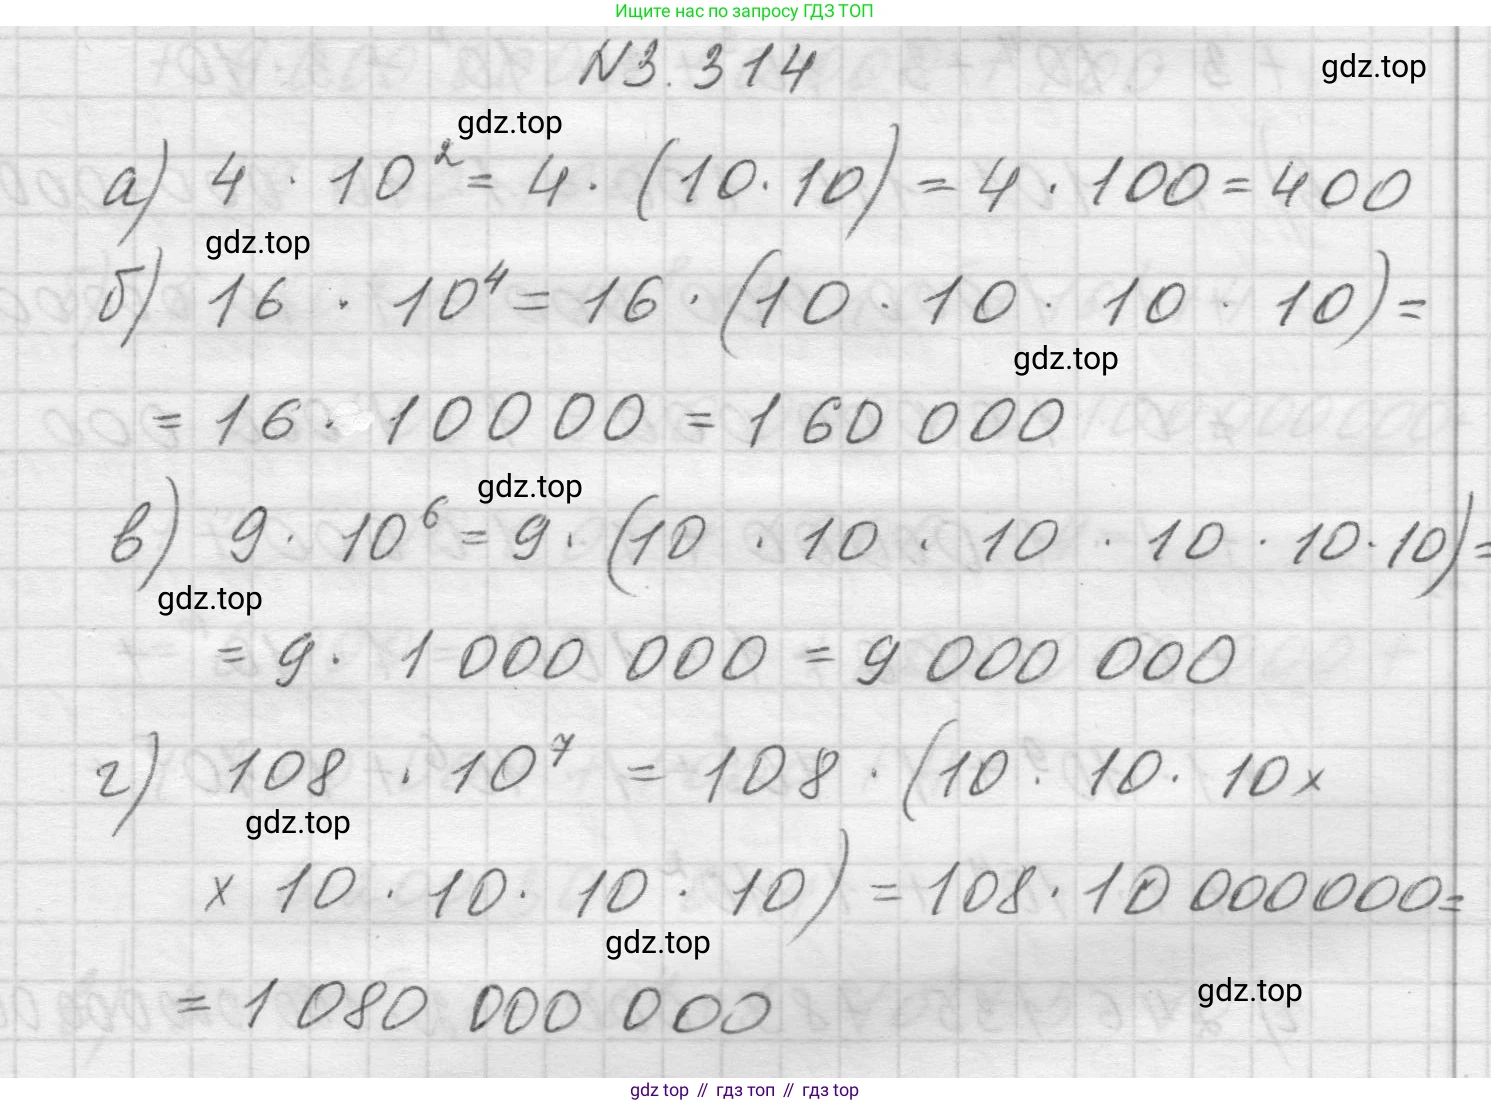 Ищите нас по запросу ГДЗ ТОП
N3.314
gdz.top
gdz.top
а) 4 · 10² = 4 · (10 · 10) = 4 · 100 = 400
gdz.top
б) 16 · 10⁴ = 16 · (10 · 10 · 10 · 10) =
gdz.top
= 16 · 10000 = 160 000
gdz.top
в) 9 · 10⁶ = 9 · (10 · 10 · 10 · 10 · 10 · 10) =
gdz.top
= 9 · 1 000 000 = 9 000 000
г) 108 · 10⁷ = 108 · (10 · 10 · 10 х
gdz.top
х 10 · 10 · 10 · 10) = 108 · 10 000000 =
gdz.top
gdz.top
= 1 080 000 000
gdz top // гдз топ // гдз top